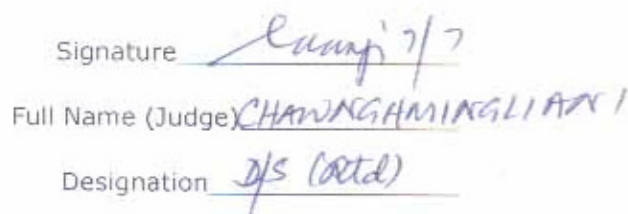 Signature 7/7
Full Name (Judge) CHAWNGHMINGLIANI
Designation D/S (Retd)